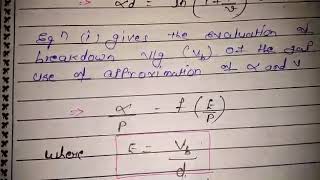 αd = ln (1 + 1/γ)
Eqn (i) gives the evaluation of
breakdown v/g (Vb) of the gap
use of approximation of α and γ
α/P = f (E/P)
where E = Vb/d